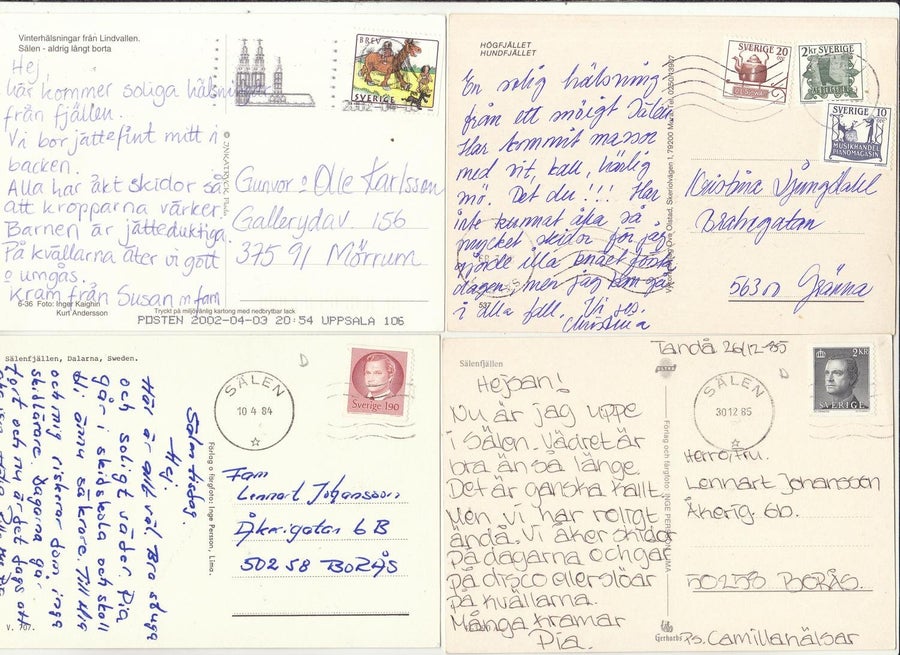 Vinterhälsningar från Lindvallen.
Sälen - aldrig långt borta
Hej
här kommer soliga hälsningar
från fjällen.
Vi bor jättefint mitt i
backen.
Alla har åkt skidor så
att kropparna värker.
Barnen är jätteduktiga.
På kvällarna äter vi gott
o umgås.
Kram från Susan m fam
6-36 Foto: Inger Kaighin
Kurt Andersson
Tryckt på miljövänlig kartong med nedbrytbar lack.
POSTEN 2002-04-03 20:54 UPPSALA 106
BREV
SVERIGE
2002-04-
Gunvor o Olle Karlsson
Gallerydav 156
375 91 Mörrum
HÖGFJÄLLET
HUNDFJÄLLET
En solig hälsning
från ett mölgt Sälen
Har kommit massor
med vit, kall, härlig
snö. Det du!!! Har
inte kunnat åka så
mycket skidor för jag
gjorde illa knäet första
dagen, men jag kan gå
i alla fall. Vi ses.
Christina
537
SVERIGE 20
2 KR SVERIGE
SVERIGE 10
MUSIKHANDEL
PIANOMAGASIN
Kristina Ljungdahl
Brahegatan
563 00 Gränna
Sälenfjällen, Dalarna, Sweden.
Sälen tisdag.
Hej.
Här är allt väl. Bra stuga
och soligt väder. Pia
går i skidskola och skall
bli ännu säkrare. Till hjälp
och mig riskerar dom inga
skidlärare. Dagarna går
fort och nu är det dags att
V. 707.
Förlag o färgfoto: Inge Persson, Lima.
SÄLEN
10 4 84
Sverige 190
Fam
Lennart Johansson
Åkerigatan 6 B
502 58 BORÅS
Sälenfjällen
Tandå 26/12-85
Hejsan!
Nu är jag uppe
i Sälen. Vädret är
bra än så länge.
Det är ganska kallt.
Men vi har roligt
ändå. Vi åker skidor
på dagarna och går
på disco eller slöar
på kvällarna.
Många kramar
Pia
Förlag och färgfoto: INGE PERSSON, LIMA
SÄLEN
30 12 85
2 KR
SVERIGE
Herr o Fru.
Lennart Johansson
Åkerig. 6b.
50258 BORÅS.
Gerhards
Ps. Camilla hälsar